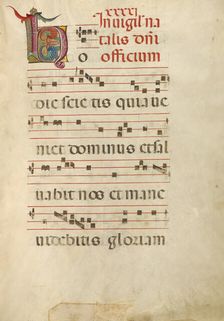 xxxxi
In uigil na
talis dñi
officium
Ho
die scie tis quia ue
niet dominus et sal
uabit nos et mane
uidebitis gloriam